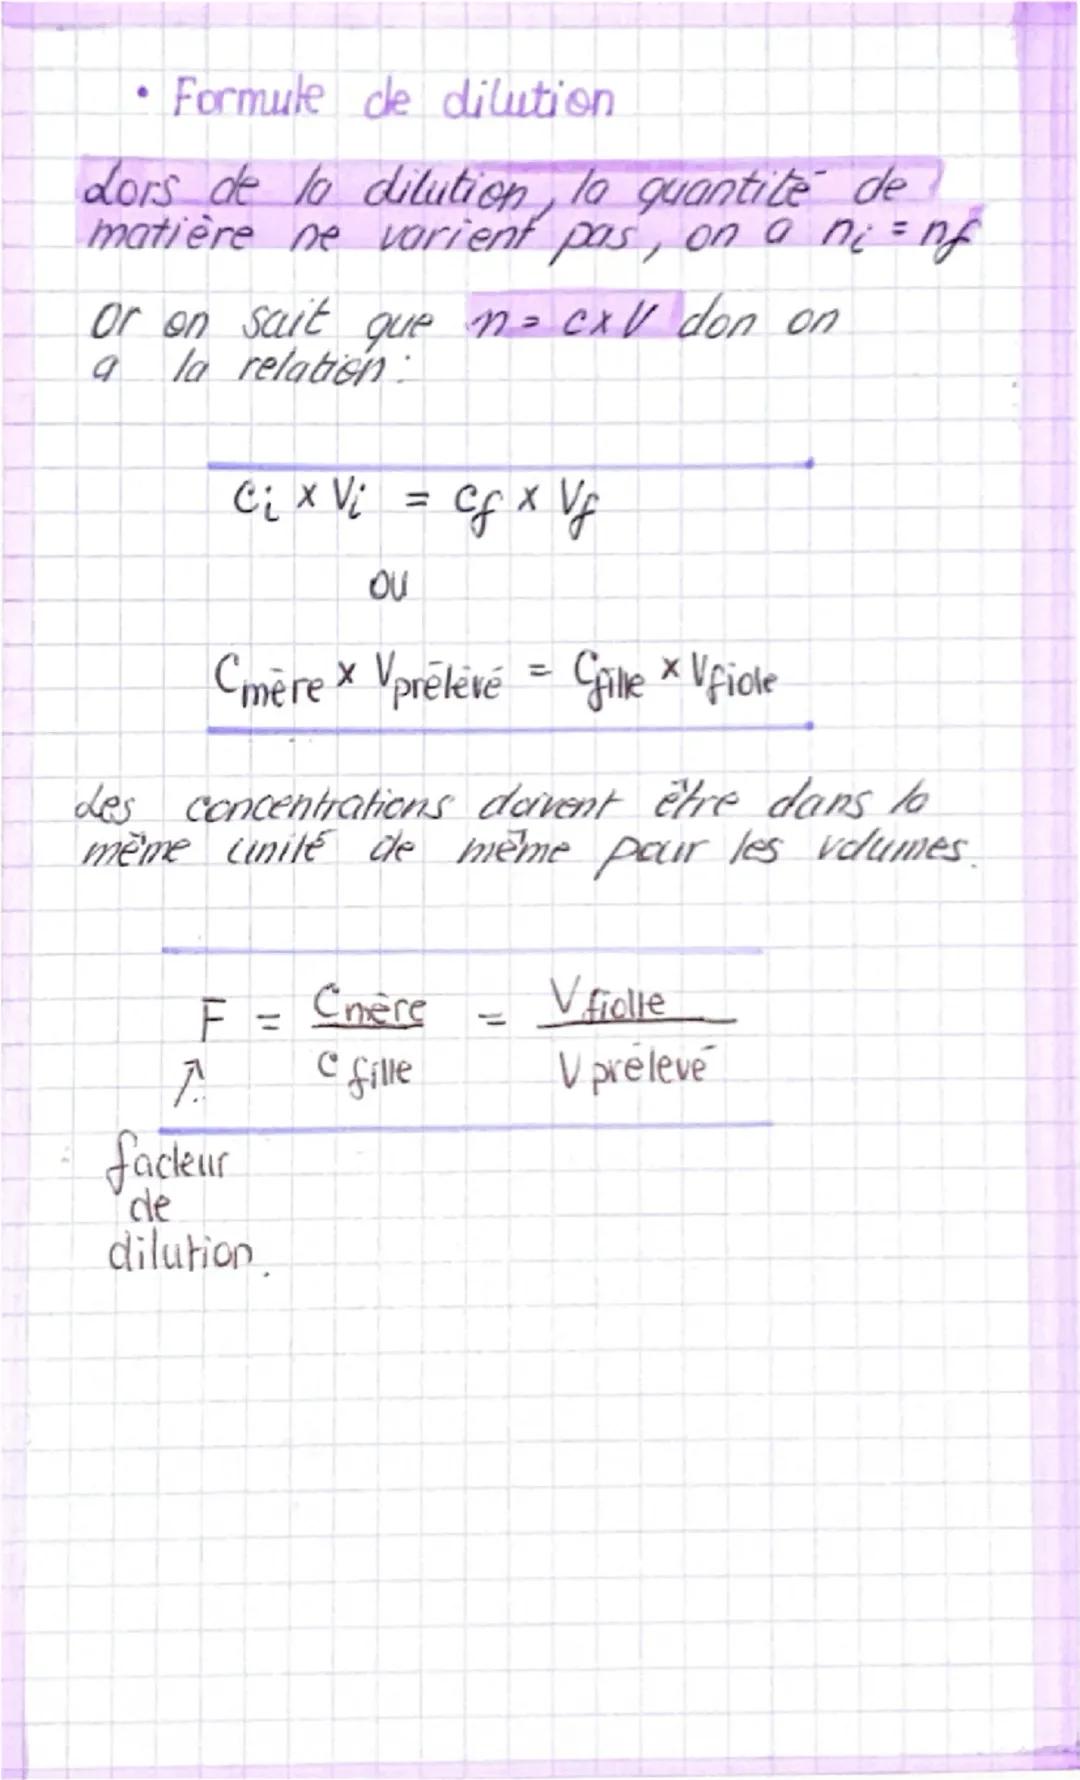 • Formule de dilution
Lors de la dilution, la quantité de
matière ne varient pas, on a ni = nf
Or on sait que n = c x V don on
a la relation :
Ci x Vi = Cf x Vf
ou
Cmère x Vprélevé = Cfille x Vfiole
Les concentrations doivent être dans la
même unité de même pour les volumes.
F = Cmère / C fille = V fiolle / V prélevé
facteur
de
dilution.